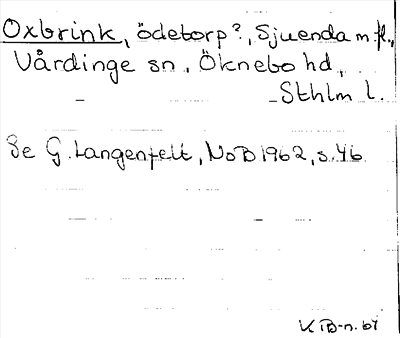 Oxbrink, ödetorp?, Sjuenda m.fl.,
Vårdinge sn, Öknebo hd,
Sthlm l.
Se G. Langenfelt, NoB 1962, s. 46
K IB-n. 67